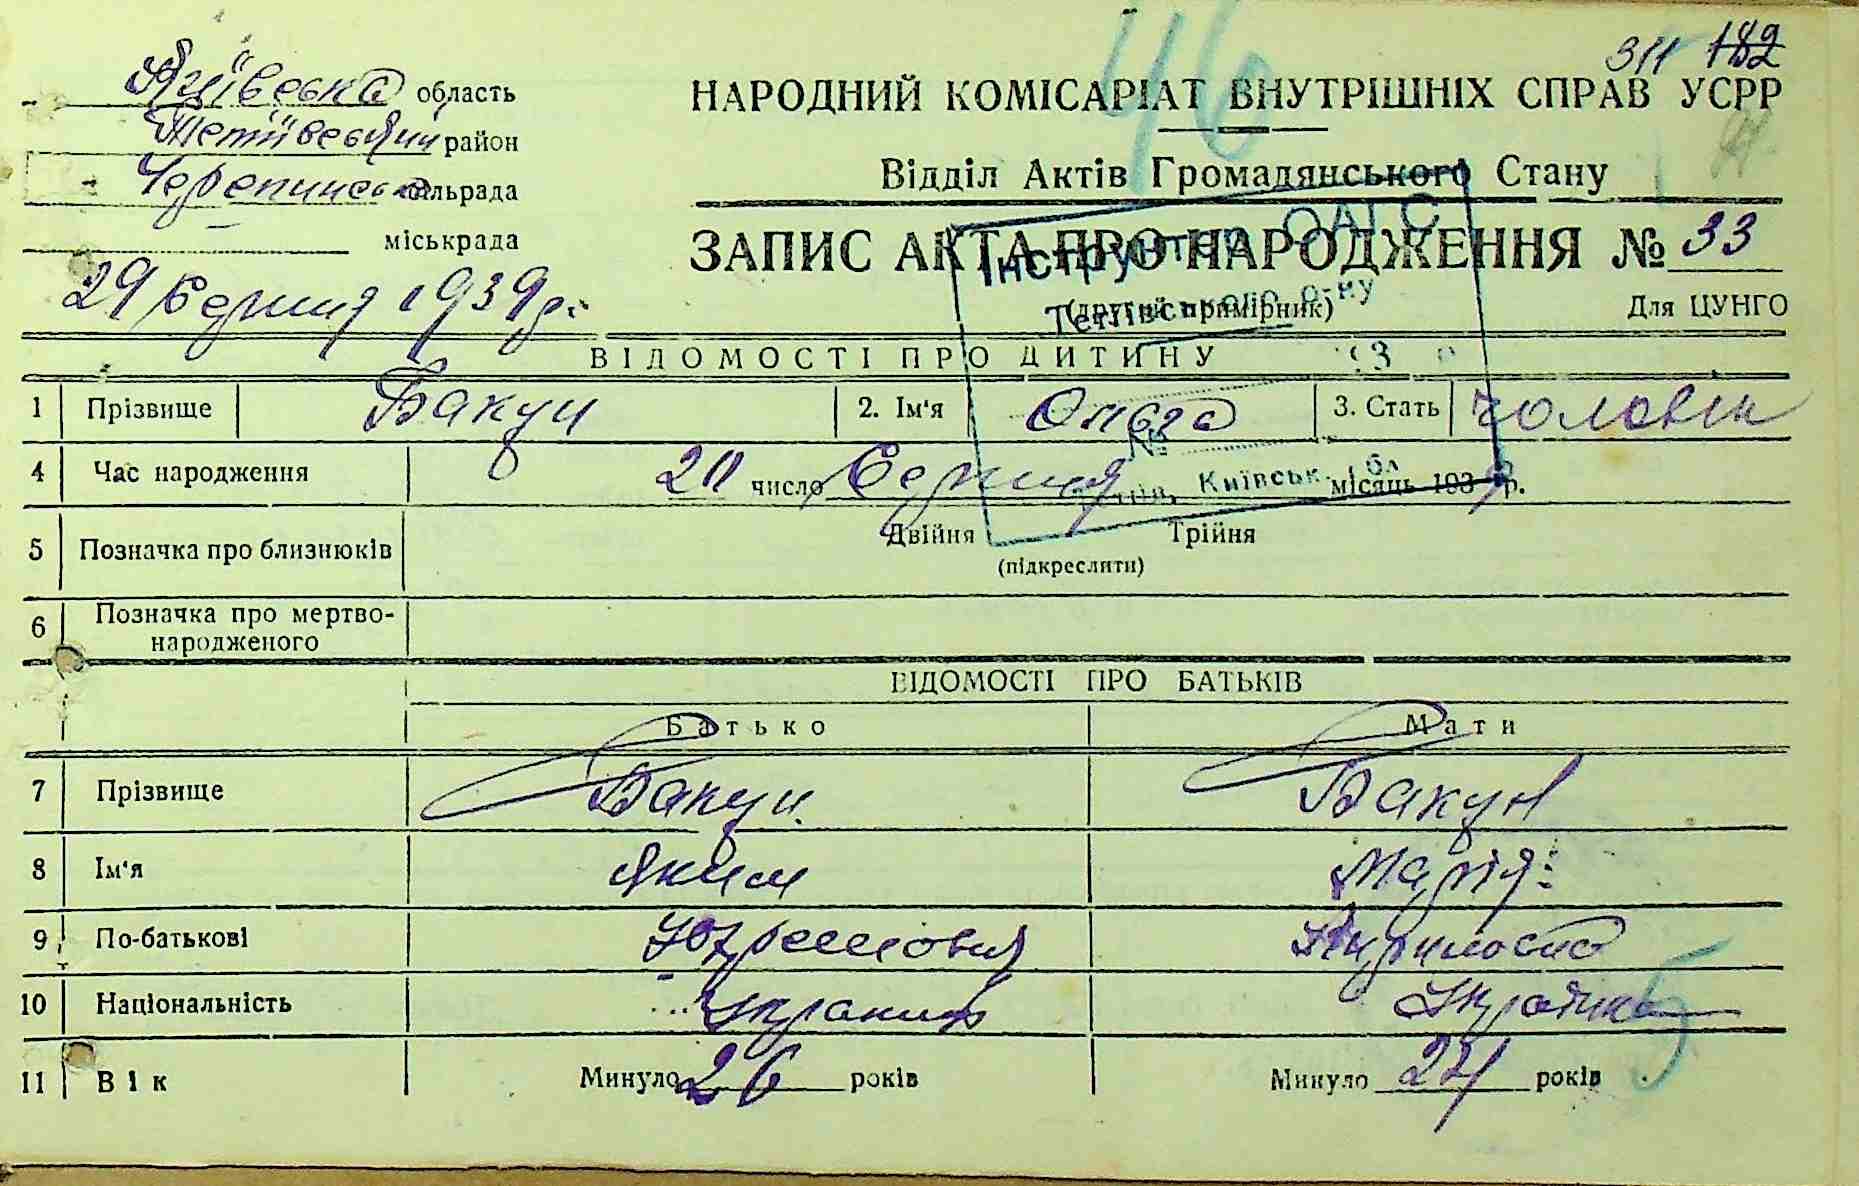 46
311 182
Київська область
Тетіївський район
Черепинська сільрада
міськрада
29 Серпня 1939 р.
НАРОДНИЙ КОМІСАРІАТ ВНУТРІШНІХ СПРАВ УСРР
Відділ Актів Громадянського Стану
ЗАПИС АКТА ПРО НАРОДЖЕННЯ № 33
(другий примірник) Для ЦУНГО
Інструктор ОАГС
Тетіївського р-ну
193 р
№
Київськ. обл
ВІДОМОСТІ ПРО ДИТИНУ
1 Прізвище Бакун 2. Ім'я Ольга 3. Стать чоловік
4 Час народження 20 число Серпня місяць 1939 р.
5 Позначка про близнюків Двійня Трійня
(підкреслити)
6 Позначка про мертво-
народженого
ВІДОМОСТІ ПРО БАТЬКІВ
Батько Мати
7 Прізвище Бакун Бакун
8 Ім'я Яким Марія
9 По-батькові Юхремович Кириловна
10 Національність Украниц Украінка
11 Вік Минуло 26 років Минуло 24 років